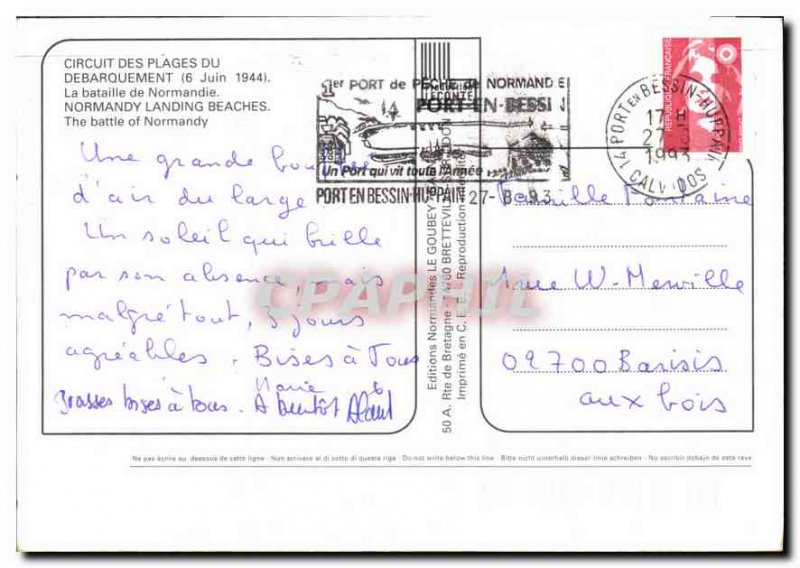 CIRCUIT DES PLAGES DU
DEBARQUEMENT (6 Juin 1944).
La bataille de Normandie.
NORMANDY LANDING BEACHES.
The battle of Normandy
Une grande bouffée
d'air du large
Un soleil qui brille
par son absence, mais
malgré tout, 3 jours
agréables. Bises à Tous
Marie
grosses bises à tous. A bientôt
1er PORT de PÊCHE de NORMANDIE
PORT-EN-BESSIN
Un Port qui vit toute l'Année
PORT EN BESSIN-HUPPAIN 27-8-93
14 PORT EN BESSIN-HUPPAIN
17 H
1993
CALVADOS
REPUBLIQUE FRANÇAISE
Editions Normandes LE GOUBEY
50 A. Rte de Bretagne 14760 BRETTEVILLE
Imprimé en C.E.E. Reproduction
Famille Fontaine
Rue W-Merville
02700 Barisis
aux bois
CPAPHIL
Ne pas écrire au dessous de cette ligne - Non scrivere al di sotto di questa riga - Do not write below this line - Bitte nicht unterhalb dieser linie schreiben - No escribir debajo de esta raya